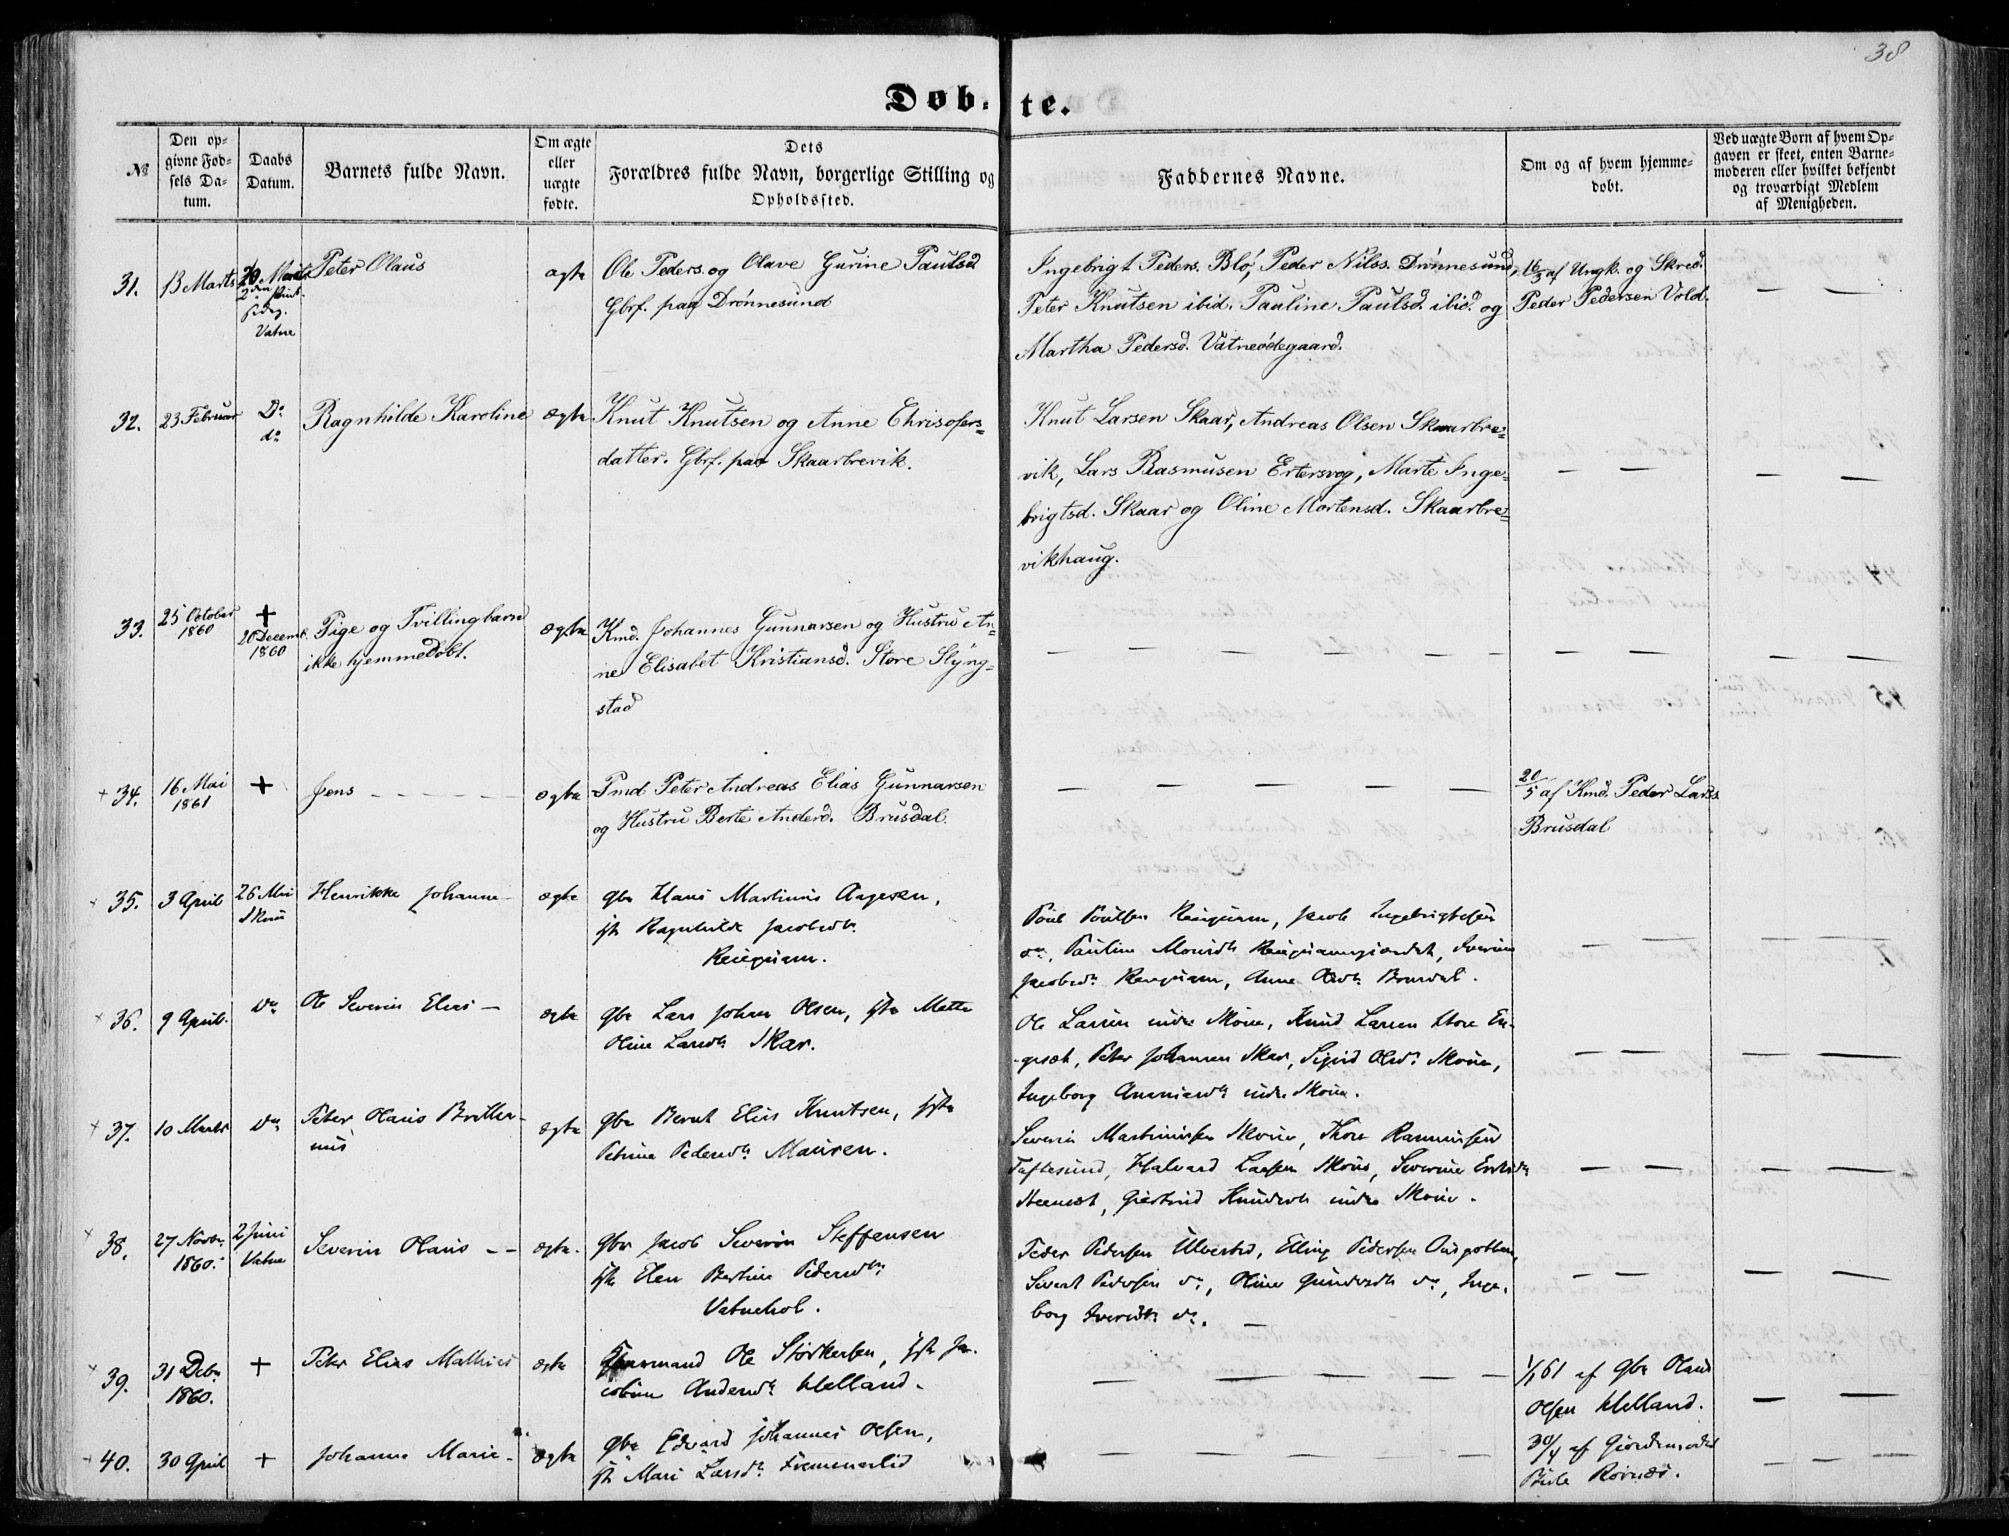 38
Døb-te.
№
Den op-
givne Fød-
sels Da-
tum.
Daabs
Datum.
Barnets fulde Navn.
Om ægte
eller
uægte
fødte.
Dets
Forældres fulde Navn, borgerlige Stilling og
Opholdssted.
Faddernes Navne.
Om og af hvem hjemme-
døbt.
Ved uægte Børn af hvem Op-
gaven er skeet, enten Barne-
moderen eller hvilket bekjendt
og troværdigt Medlem
af Menigheden.
31.
13 Marts
Vatne
Peter Olaus
ægte
Ole Peders. og Olave Gurine Paulsd
Gbrf. paa Drønnesund
Ingebrigt Peders. Blø, Peder Nilss. Drønnesund,
Peter Knutsen ibid. Pauline Paulsd. ibid. og
Martha Pedersd. Vatneødegaard.
16/3 af Ungk. og Skræd.
Peder Pedersen Vold.
32.
23 Februar
Do
do
Ragnhilde Karoline
ægte
Knut Knutsen og Anne Chrisofers-
datter. Gbrf. paa Skaarbrevik.
Knut Larsen Skaar, Andreas Olsen Skaarbre-
vik, Lars Rasmusen Ertersvog, Marte Inge-
brigtsd. Skaar og Oline Mortensd. Skaarbre-
vikhaug.
33.
25 October
1860
+
20 Decemb.
1860
Pige og Tvillingbarn
ikke hjemmedøbt.
ægte
Kmd. Johannes Gunnarsen og Hustru An-
ne Elisabet Kristiansd. Store Slyng-
stad
+ 34.
16 Mai
1861
+
Jens
ægte
Pmd Peter Andreas Elias Gunnarsen
og Hustru Berte Andersd. Brusdal.
20/5 af Kmd. Peder Larss
Brusdal
35.
3 April
26 Mai
Skoue
Henrikke Johanne
ægte
Gbr Hans Martinus Aagesen,
Hst Ragnhilde Jacobsdtr
Poul Poulsen, Jacob Ingebrigtsen
do, Pauline
Jacobsdtr, Anne Olsdtr Brusdal.
36.
9 April.
do
Ole Severin Elias
ægte
Gbr Lars Johan Olsen, Hst Mette
Oline Larsdtr Skar.
Ole Larsen indre Skoue, Knud Larsen Store En-
gesæt, Peter Johannsen Skar, Sigrid Olsdr Skoue,
Ingeborg indre Skoue.
37.
10 Marts
do
Peter Olaus
ægte
Gbr Bernt Elias Knutsen, Hst
Petrine Pedersdtr Mauren.
Severin Martinussen Skoue, Thore Rasmussen
Taftesund, Halvard Larsen Skoue, Severine
Gjertrud Knudsdtr indre Skoue.
38.
27 Novbr.
1860.
2 Juni
Vatne
Severin Olaus
ægte.
Gbr Jacob Severin Steffensen
Hst Elen Bertine Pedersdtr
Vatnehol.
Peder Pedersen Ulvestad, Elling Pedersen
Sivert Pedersen do, Oline do, Inge-
borg Iversdtr do.
39.
31 Decbr
1860.
+
Peter Elias Mathias
ægte
Ole Størkersen, Hst Ja-
cobine Andersdtr Helland.
1/1 61 af Gbr Olaus
Olsen Helland.
40.
30 April
+
Johanne Marie
ægte
Gbr Edvard Johannes Olsen,
Hst Mari Larsdr. Fremmerlid
30/4 af Gjordemoder